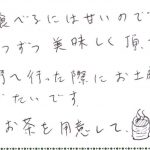 食べるには甘いので
つずつ 美味しく頂
へ行った際にお土
たいです
お茶を用意して、